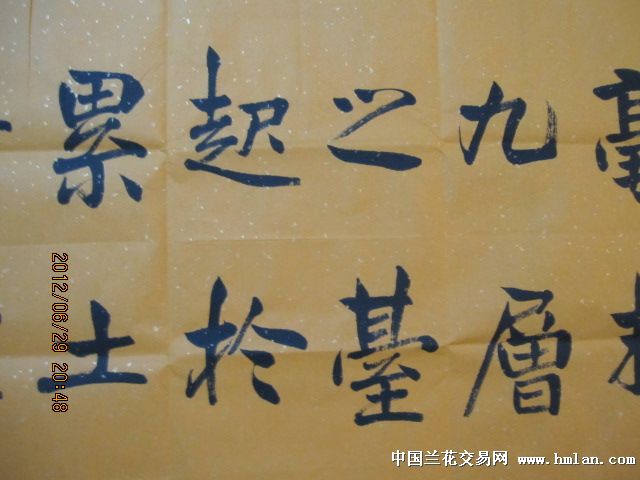 毫
九層
之臺
起於
累土
2012/06/29 20:48
中国兰花交易网 www.hmlan.com